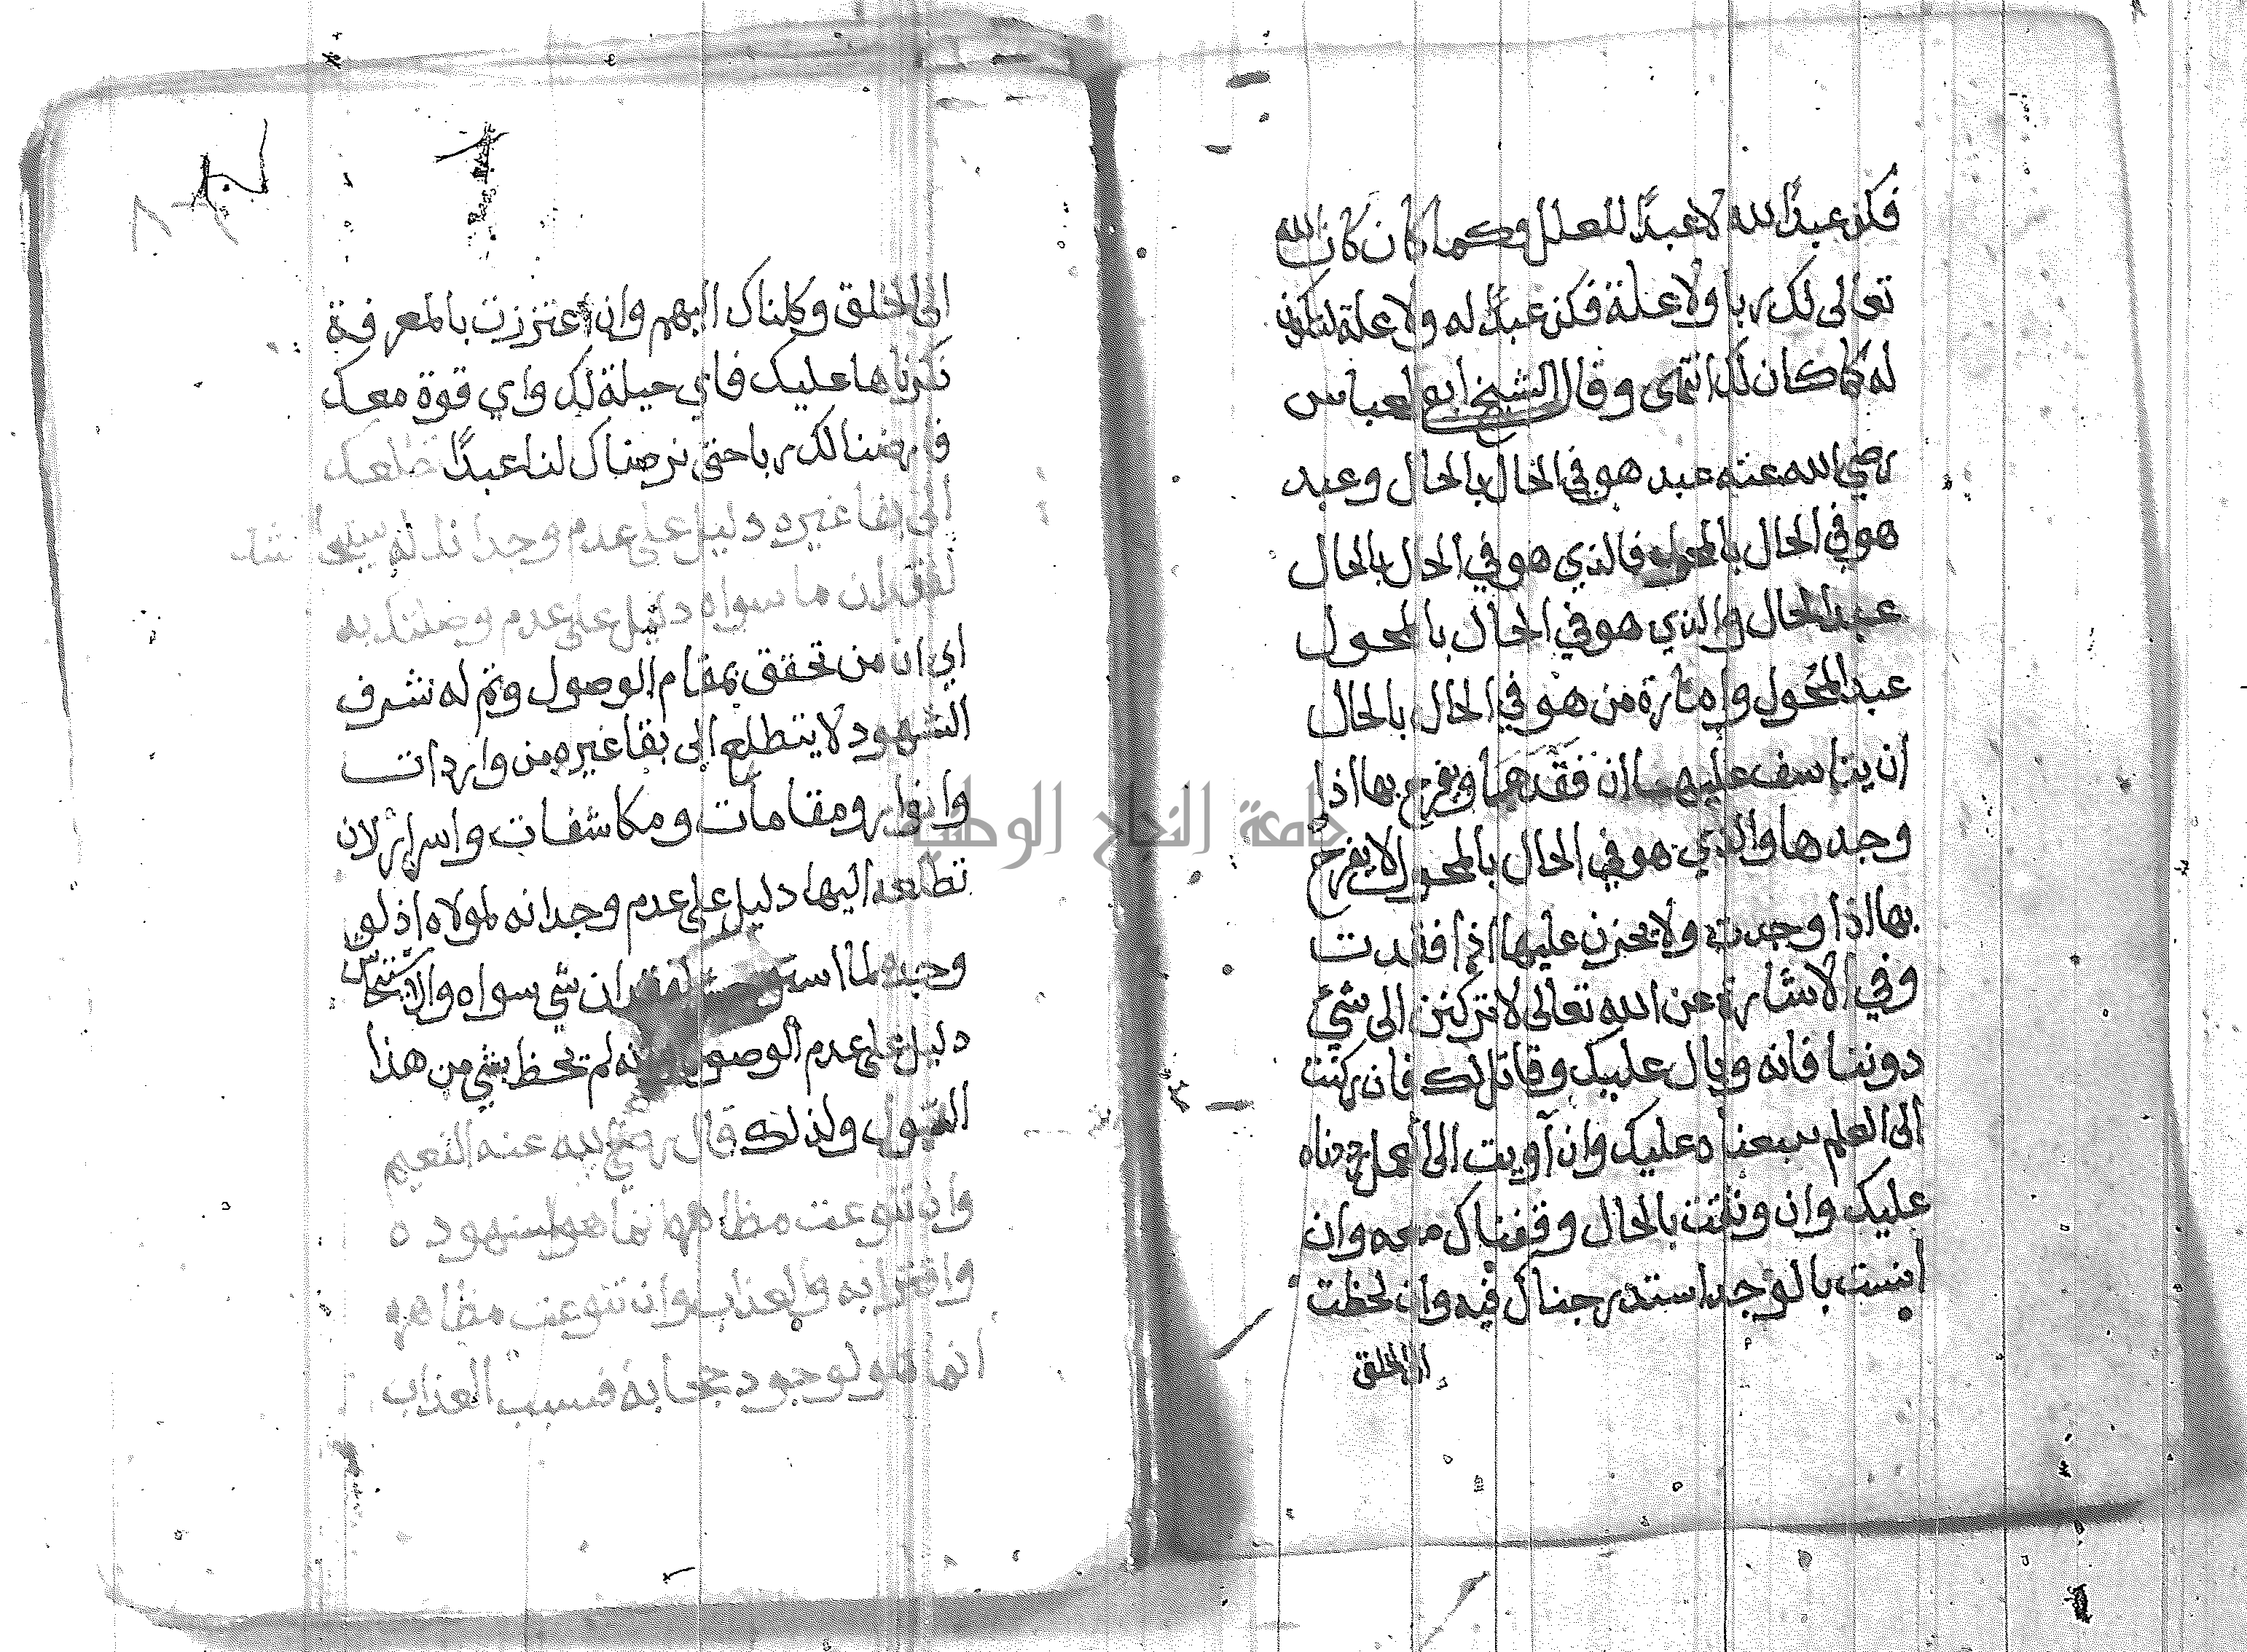 فكن عبدا لله لا عبدا للعلل وكما كان كان الله
تعالى لك ربا ولا علة فكن عبدا له ولا علة لتكون
له كما كان لك انتهى وقال الشيخ ابو العباس
رضي الله عنه عبد هو في الحال بالحال وعبد
هو في الحال بالمحول فالذي هو في الحال بالحال
عبد الحال والذي هو في الحال بالمحول
عبد المحول وامارة من هو في الحال بالحال
ان يتاسف عليها ان فقدها ويفرح بها اذا
وجدها والذي هو في الحال بالمحول لا يفرح
بها اذا وجدت ولا يحزن عليها اذا فقدت
وفي الاشارة عن الله تعالى لا تركنن الى شيء
دوننا فانه وبال عليك وقاتل لك فان ركنت
الى العلم تتبعناه عليك وان آويت الى العمل رددناه
عليك وان وثقت بالحال وقفناك معه وان
انست بالوجد استدرجناك فيه وان لحظت
الى الخلق
الى الخلق وكلناك اليهم وان اعتززت بالمعرفة
نكرناها عليك فاي حيلة لك واي قوة معك
فارضنا لك ربا حتى نرضاك لنا عبدا تطلعك
الى بقا غيره دليل على عدم وجدانك له واستيحاشك
لفقدان ما سواه دليل على عدم وصلتك به
اي ان من تحقق بمقام الوصول وتم له شرف
الشهود لا يتطلع الى بقا غيره من واردات
وانوار ومقامات ومكاشفات واسرار لان
تطلعه اليها دليل على عدم وجدانه لمولاه اذ لو
وجده لما استوحش لفقدان شي سواه والاستيحاش
دليل على عدم الوصول لانه لم يحظ بشي من هذا
القبول ولذلك قال رضي الله عنه النعيم
وان تنوعت مظاهره انما هو لشهوده
واقترابه والعذاب وان تنوعت مظاهره
انما هو لوجود حجابه فسبب العذاب
جامعة النجاح الوطنية